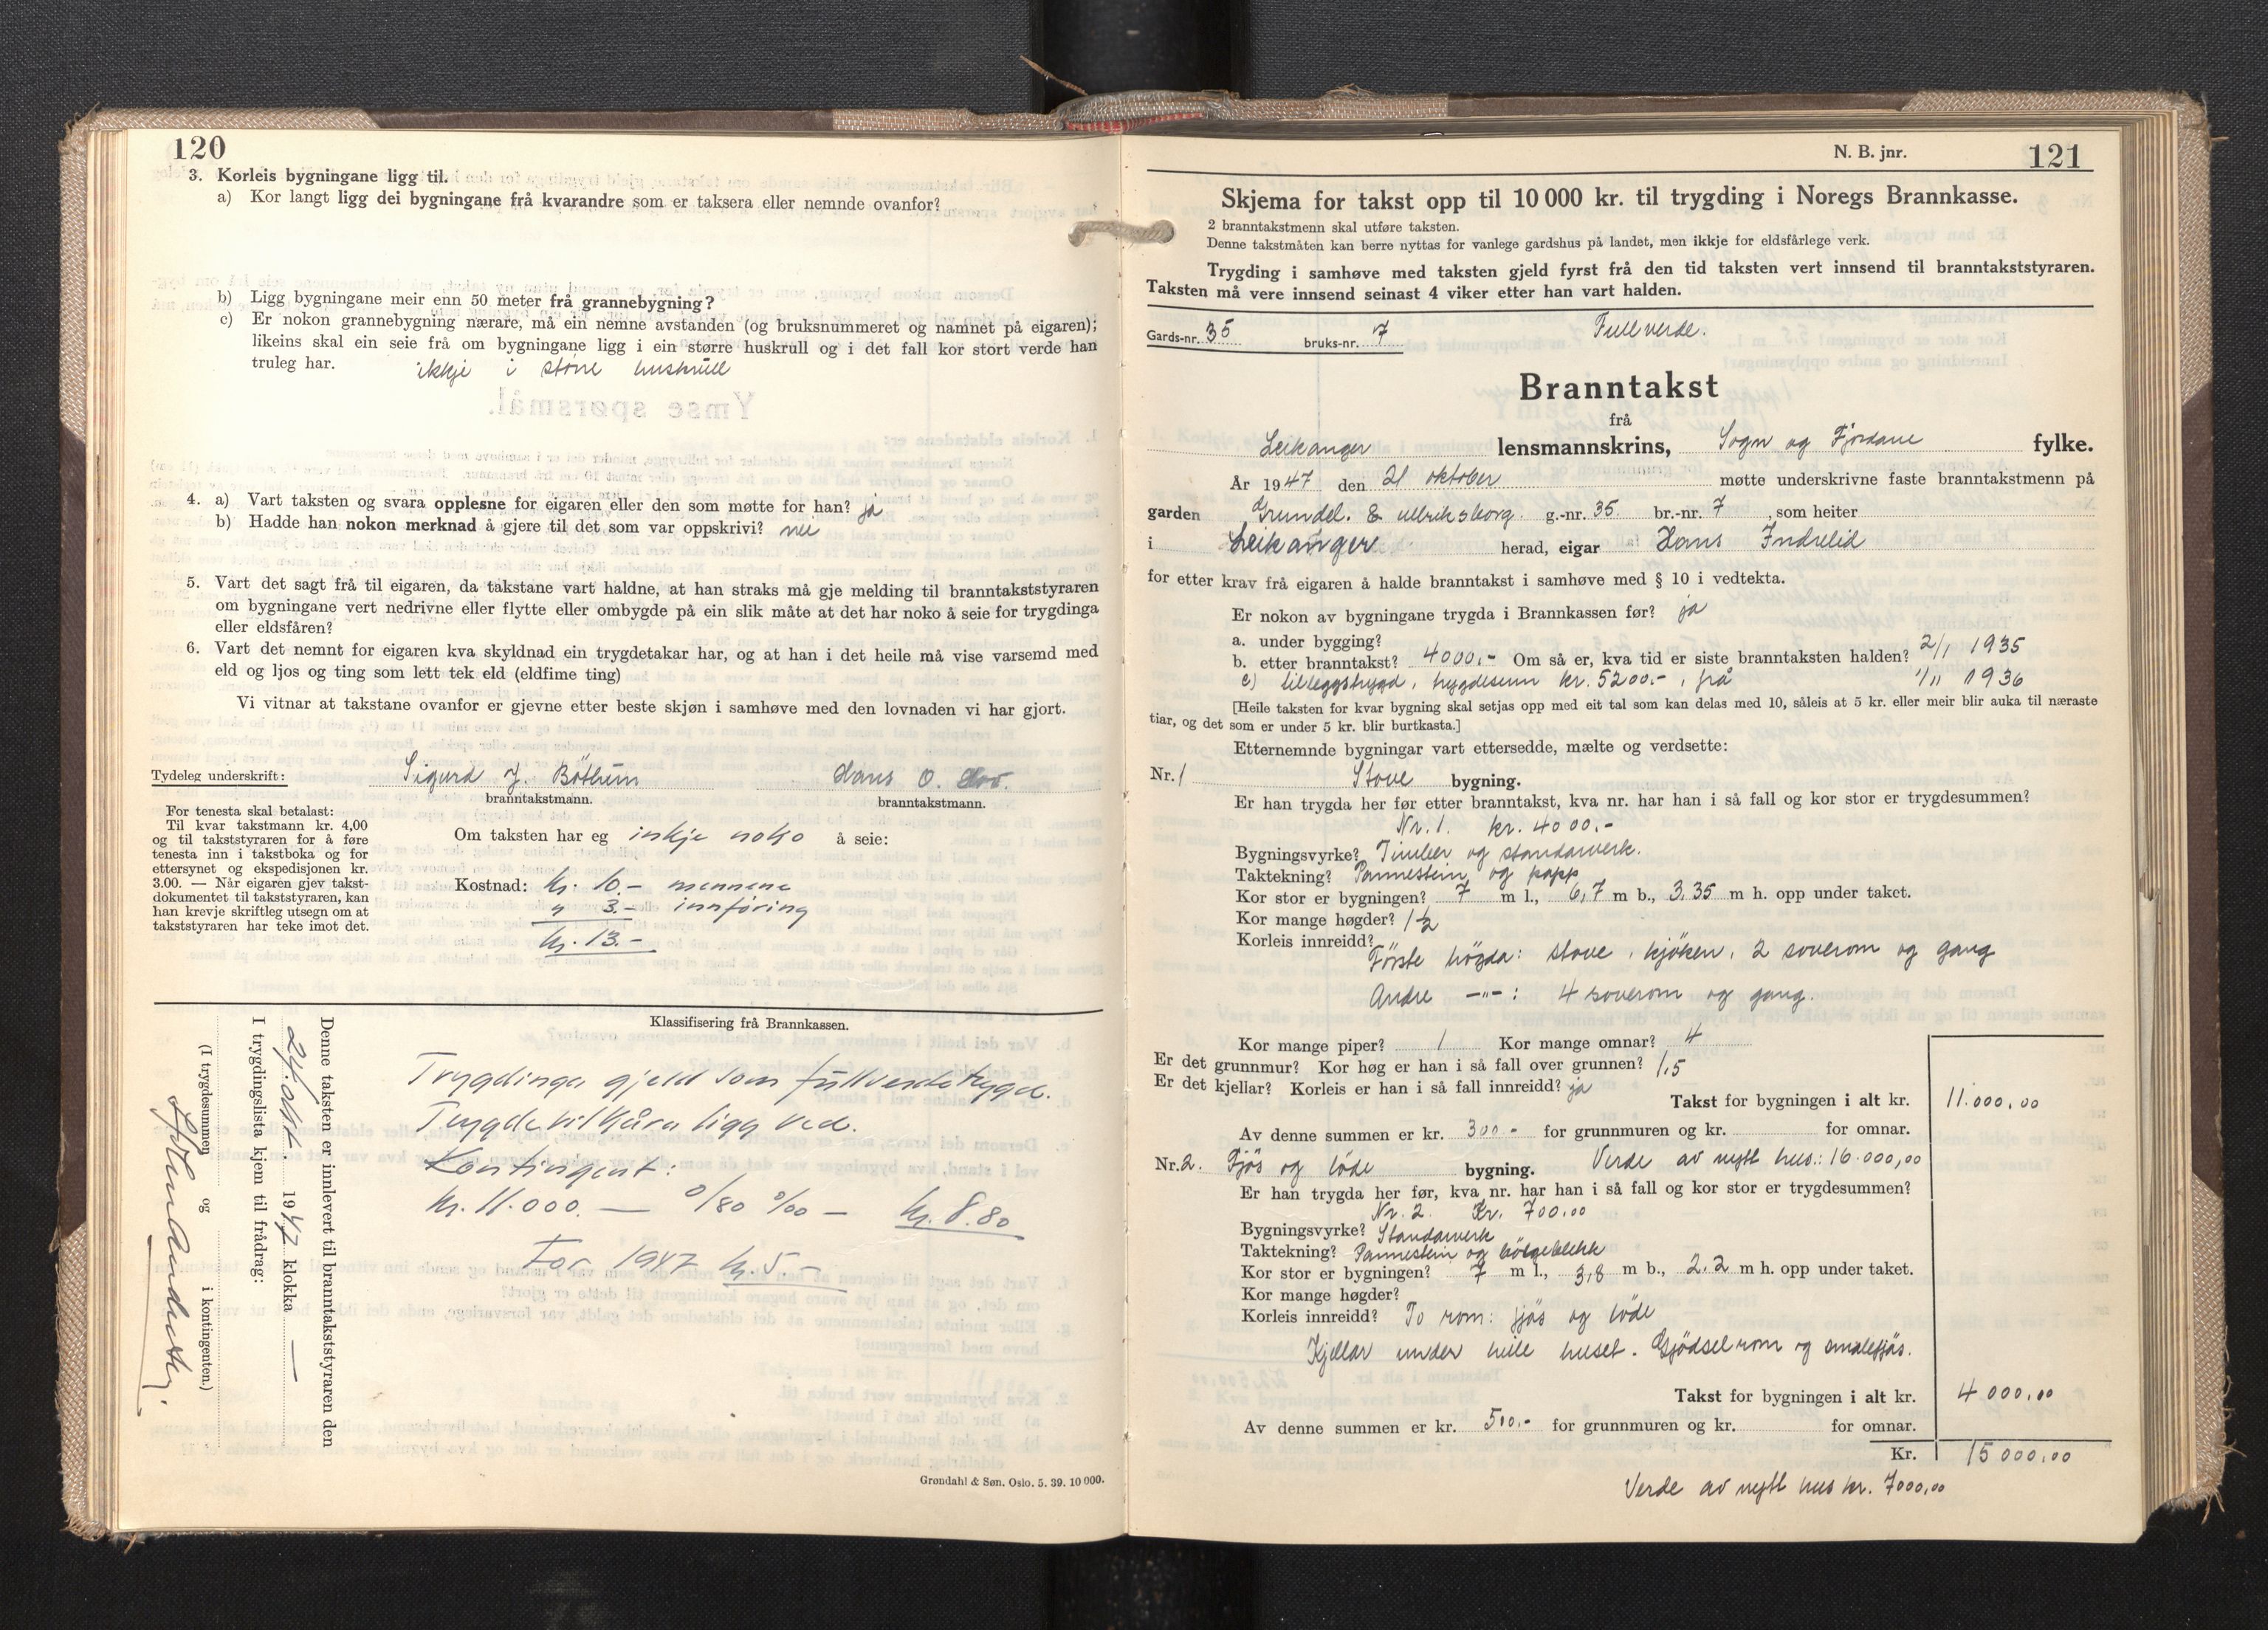 120
3. Korleis bygningane ligg til.
a) Kor langt ligg dei bygningane frå kvarandre som er taksera eller nemnde ovanfor?
b) Ligg bygningane meir enn 50 meter frå grannebygning?
c) Er nokon grannebygning nærare, må ein nemne avstanden (og bruksnummeret og namnet på eigaren);
likeins skal ein seie frå om bygningane ligg i ein større huskrull og i det fall kor stort verde han
truleg har. ikkje i større huskrull
4. a) Vart taksten og svara opplesne for eigaren eller den som møtte for han? ja
b) Hadde han nokon merknad å gjere til det som var oppskrivi? nei
5. Vart det sagt frå til eigaren, da takstane vart haldne, at han straks må gje melding til branntakststyraren
om bygningane vert nedrivne eller flytte eller ombygde på ein slik måte at det har noko å seie for trygdinga
eller eldsfåren?
6. Vart det nemnt for eigaren kva skyldnad ein trygdetakar har, og at han i det heile må vise varsemd med
eld og ljos og ting som lett tek eld (eldfime ting)
Vi vitnar at takstane ovanfor er gjevne etter beste skjøn i samhøve med den lovnaden vi har gjort.
Tydeleg underskrift: Sigurd J. Bøthun Hans O. Hov.
branntakstmann. branntakstmann.
For tenesta skal betalast:
Til kvar takstmann kr. 4,00
og til takststyraren for å føre
tenesta inn i takstboka og for
ettersynet og ekspedisjonen kr.
3.00. — Når eigaren gjev takst-
dokumentet til takststyraren, kan
han krevje skriftleg utsegn om at
takststyraren har teke imot det.
Om taksten har eg inkje noko å seie:
Kostnad: kr. 10.- mennene
" 3.- innføring
kr. 13.-
Klassifisering frå Brannkassen.
Trygdinga gjeld som fullverdetrygd.
Trygdevilkåra ligg ved.
Kontingent:
kr. 11.000. — 0/80 ‰ — kr. 8.80
For 1947 kr. 5.-
Denne taksten er innlevert til branntakststyraren den
24. okt. 1947 klokka —
I trygdingslista kjem til frådrag:
(I trygdesummen og i kontingenten.)
Grøndahl & Søn. Oslo. 5. 39. 10 000.
N. B. jnr. 121
Skjema for takst opp til 10 000 kr. til trygding i Noregs Brannkasse.
2 branntakstmenn skal utføre taksten.
Denne takstmåten kan berre nyttas for vanlege gardshus på landet, men ikkje for eldsfårlege verk.
Trygding i samhøve med taksten gjeld fyrst frå den tid taksten vert innsend til branntakststyraren.
Taksten må vere innsend seinast 4 viker etter han vart halden.
Gards-nr. 35 bruks-nr. 7 Fullverde.
Branntakst
frå
Leikanger lensmannskrins, Sogn og Fjordane fylke.
År 1947 den 21 oktober møtte underskrivne faste branntakstmenn på
garden Grundel. & Ullriksborg g.-nr. 35 br.-nr. 7, som heiter
i Leikanger herad, eigar Hans Indrelid
for etter krav frå eigaren å halde branntakst i samhøve med § 10 i vedtekta.
Er nokon av bygningane trygda i Brannkassen før? ja
a. under bygging?
b. etter branntakst? 4000.- Om så er, kva tid er siste branntaksten halden? 2/1 1935
c) tilleggstrygd, trygdesum kr. 5200.-, frå 1/11 1936
[Heile taksten for kvar bygning skal setjas opp med eit tal som kan delas med 10, såleis at 5 kr. eller meir blir auka til næraste
tiar, og det som er under 5 kr. blir burtkasta.]
Etternemnde bygningar vart ettersedde, mælte og verdsette:
Nr. 1 Stove bygning.
Er han trygda her før etter branntakst, kva nr. har han i så fall og kor stor er trygdesummen?
Nr. 1. kr. 4000.-
Bygningsvyrke? Timber og standarverk.
Taktekning? Pannestein og papp
Kor stor er bygningen? 7 m l., 6,7 m b., 3,35 m h. opp under taket.
Kor mange høgder? 1½
Korleis innreidd?
Første høgda: stove, kjøken, 2 soverom og gang
Andre —"— : 4 soverom og gang.
Kor mange piper? 1 Kor mange omnar? 4
Er det grunnmur? Kor høg er han i så fall over grunnen? 1,5
Er det kjellar? Korleis er han i så fall innreidd? ja
Takst for bygningen i alt kr. 11.000,00
Av denne summen er kr. 300.- for grunnmuren og kr. for omnar.
Nr. 2. Fjøs og løde bygning. Verde av nytt hus.: 16.000,00
Er han trygda her før, kva nr. har han i så fall og kor stor er trygdesummen?
Nr. 2. Kr. 700.00
Bygningsvyrke? Standarverk
Taktekning? Pannestein og bølgeblekk
Kor stor er bygningen? 7 m l., 3,8 m b., 2.2 m h. opp under taket.
Kor mange høgder?
Korleis innreidd? To rom: fjøs og løde
Kjellar under heile huset. Gjødselrom og smalefjøs.
Takst for bygningen i alt kr. 4 000,00
Av denne summen er kr. 500.- for grunnmuren og kr. for omnar.
Kr. 15 000,00
Verde av nytt hus kr. 7000,00